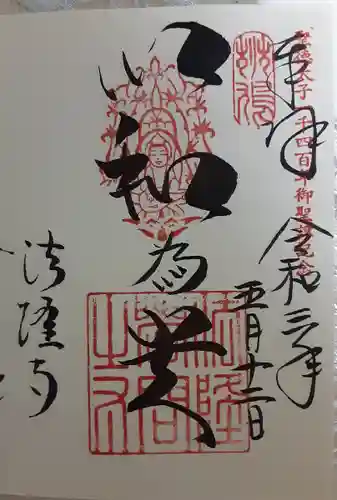 奉拝
聖徳太子一千四百年御聖諱記念
令和三年
五月十二日
以和為貴
法隆寺